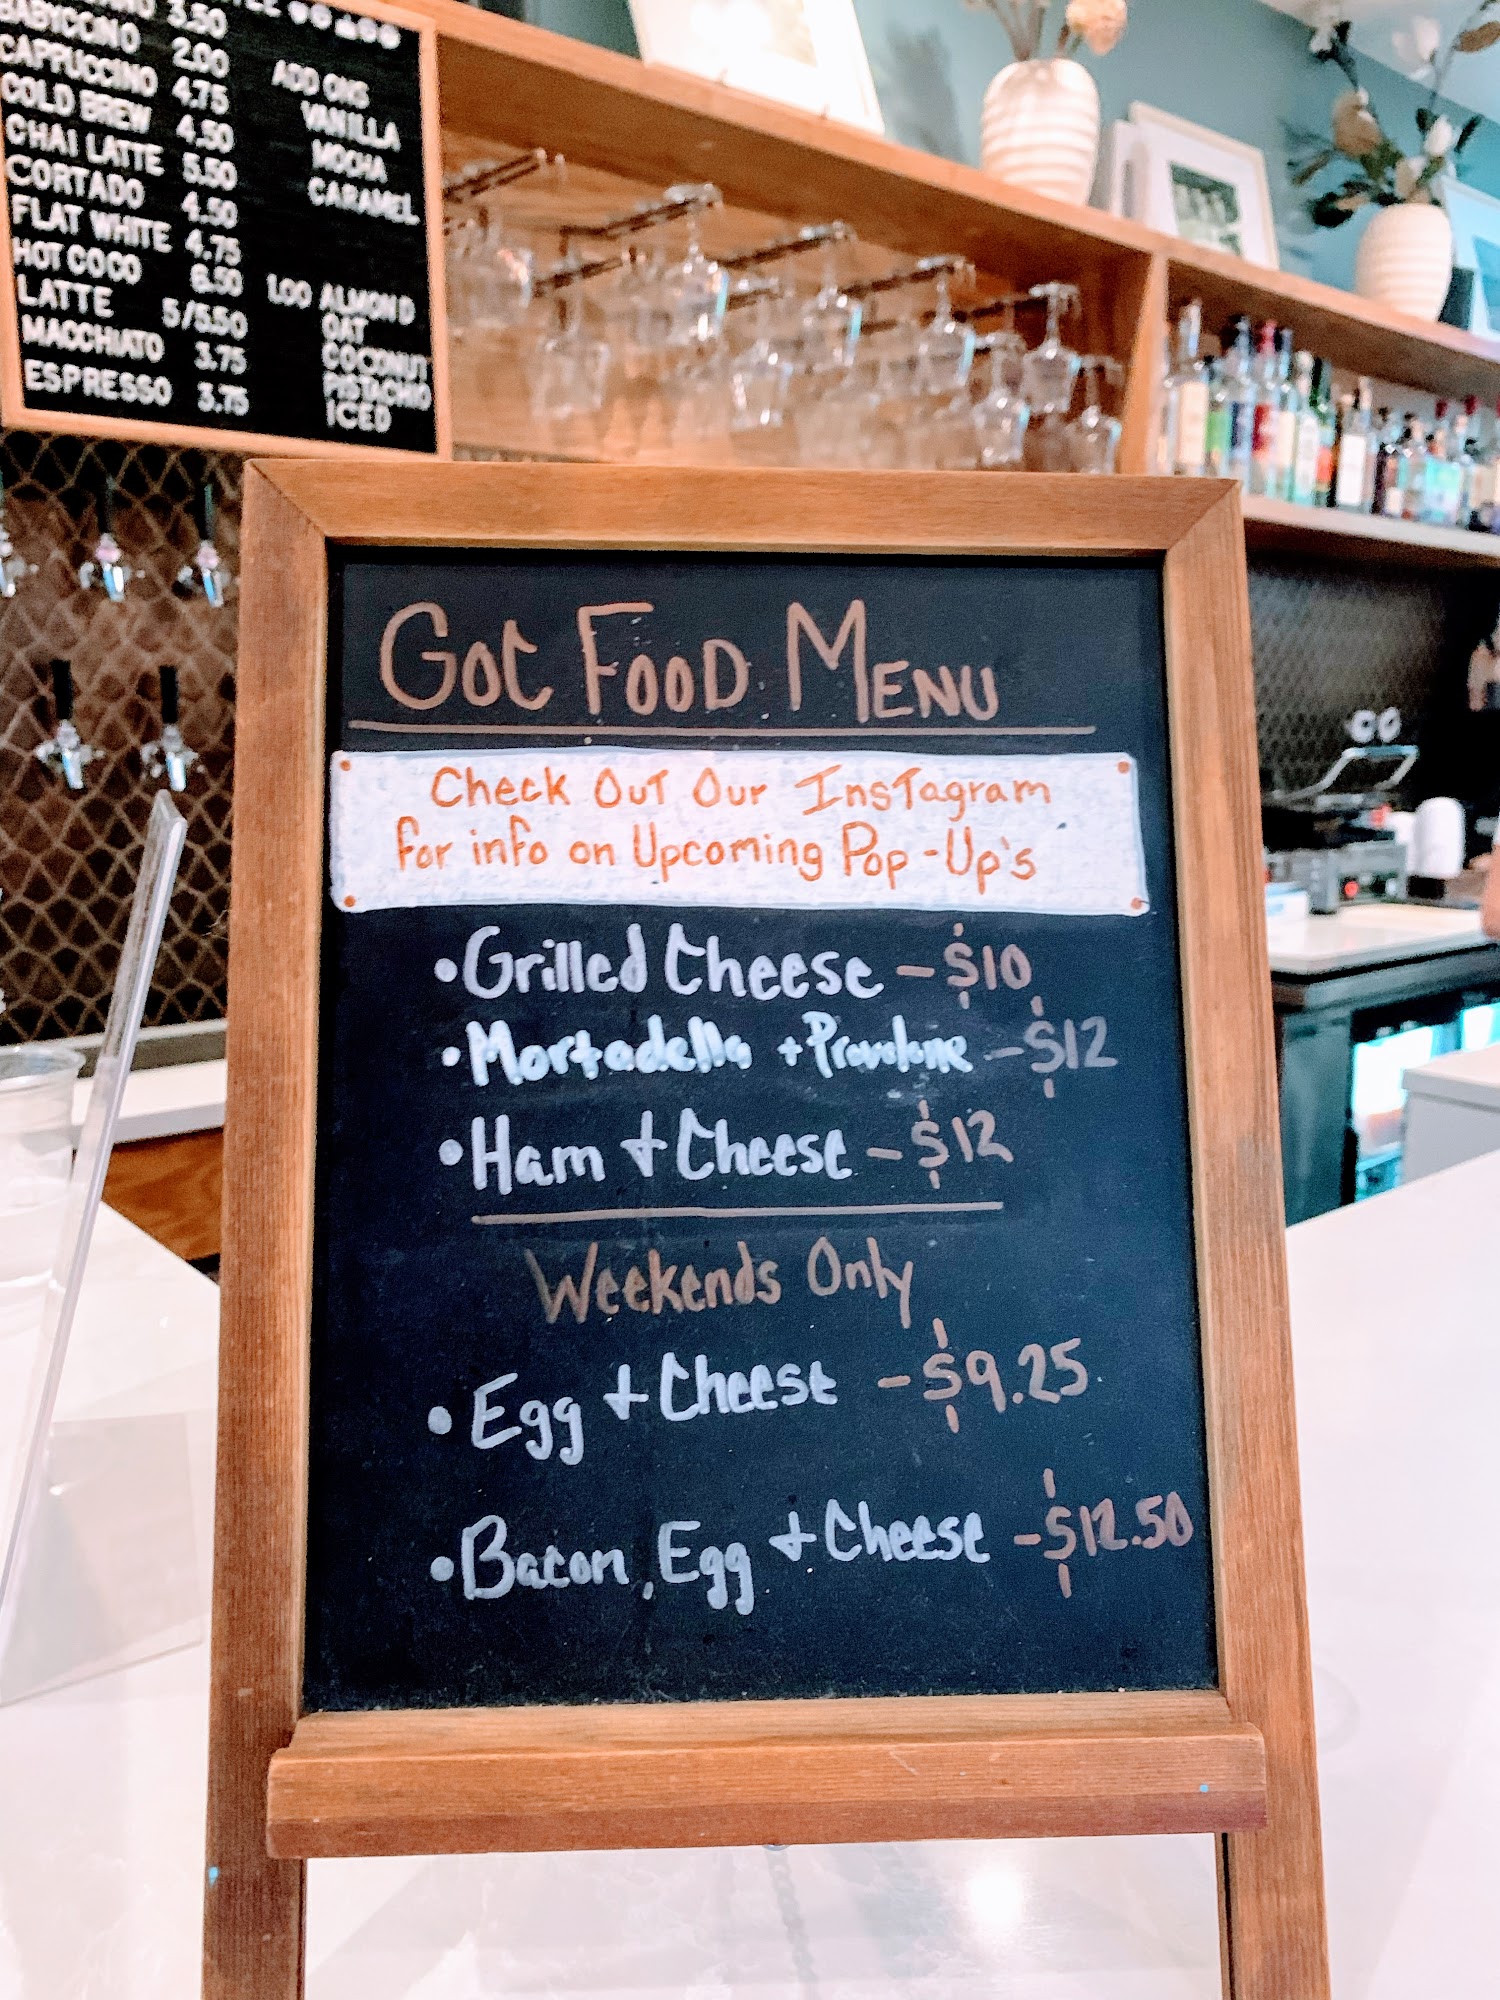 3.50
BABYCCINO 2.00
CAPPUCCINO 4.75
COLD BREW 4.50
CHAI LATTE 5.50
CORTADO 4.50
FLAT WHITE 4.75
HOT COCO 6.50
LATTE 5/5.50
MACCHIATO 3.75
ESPRESSO 3.75
ADD ONS
VANILLA
MOCHA
CARAMEL
1.00 ALMOND
OAT
COCONUT
PISTACHIO
ICED
GOC FOOD MENU
Check Out Our Instagram
for info on Upcoming Pop-Up's
•Grilled Cheese - $10
•Mortadella + Provolone - $12
•Ham + Cheese - $12
Weekends Only
•Egg + Cheese - $9.25
•Bacon, Egg + Cheese - $12.50